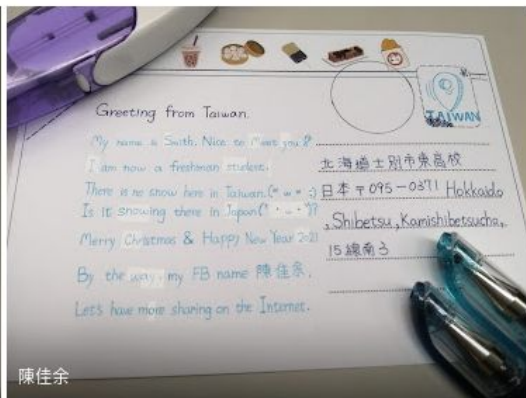 Greeting from Taiwan.
My name is Swith. Nice to Meet you!?
I am now a freshman student.
There is no snow here in Taiwan.("•w•")
Is it snowing there in Japan("•~•")?
Merry Christmas & Happy New Year 2021
By the way, my FB name 陳佳余.
Let's have more sharing on the Internet.
TAIWAN
北海道士別市東高校
日本〒095-0371 Hokkaido
,Shibetsu,Kamishibetsucho,
15線南3
陳佳余